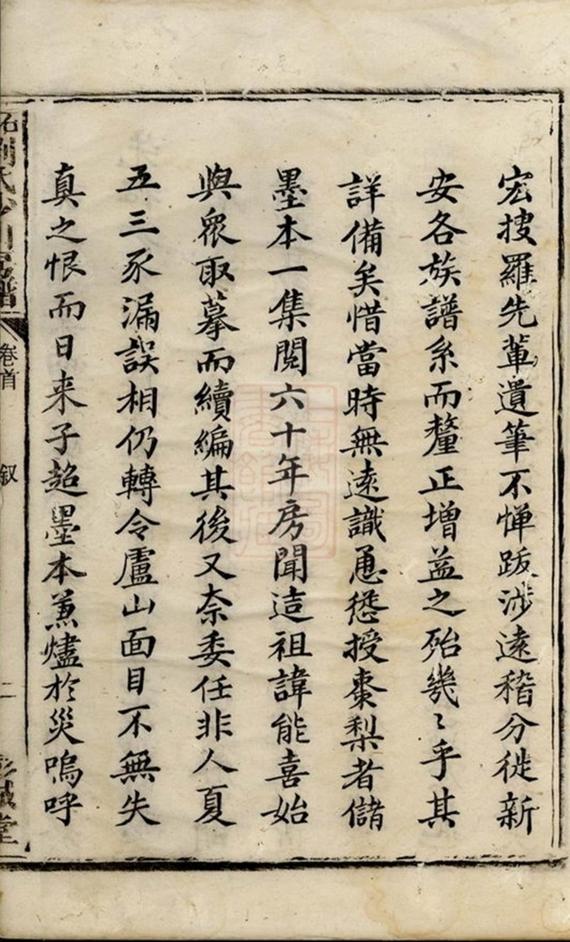 宏搜羅先軰遺筆不憚跋涉遠稽分徙新
安各族譜系而釐正增益之殆幾〻乎其
詳備矣惜當時無遠識慂恿授棗梨者儲
墨本一集閱六十年房聞造祖諱能喜始
與眾取摹而續編其後又奈委任非人夏
五三豕漏誤相仍轉令廬山面目不無失
真之恨而日来子超墨本蒸燼於災嗚呼
卷首
叙
二